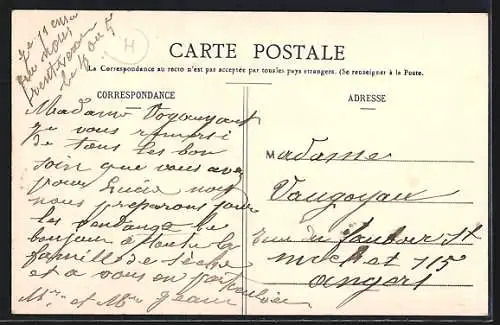 H
CARTE POSTALE
La Correspondance au recto n'est pas acceptée par tous les pays étrangers. (Se renseigner à la Poste.
CORRESPONDANCE
ADRESSE
Madame
je vous remersi
de tous les bon
soin que vous avez
pour Lucie nous
nous preparons pour
les vendange le
bonjour a toute la
famille de
et a vous en particulier
Mr et Mme
Madame
Vaugoyau
rue du faubour St
michel 115
angers